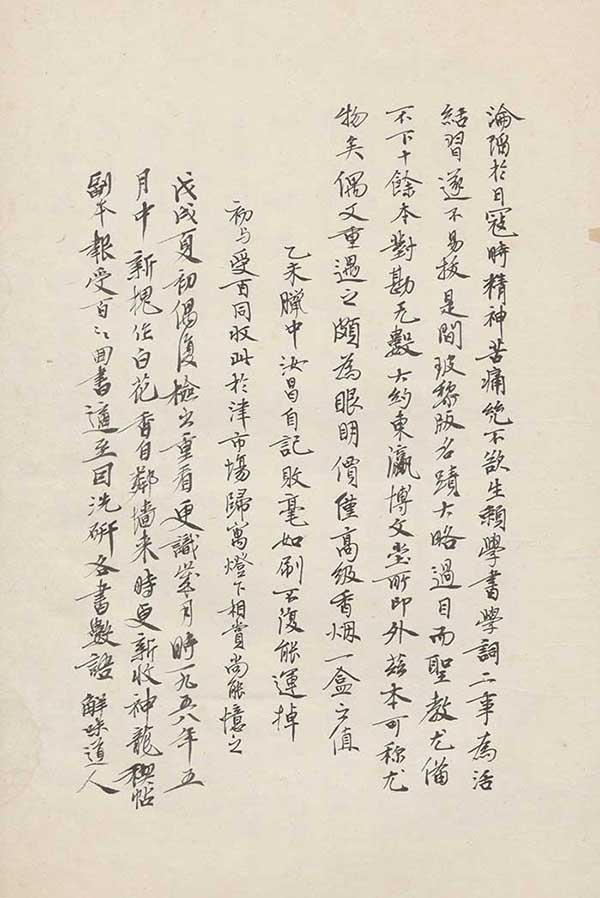 淪陷於日寇時精神苦痛绝不欲生賴學書學詞二事為活
結習遂不易拔是間玻黎版名蹟大略過目而聖教尤備
不下十餘本對勘无數大約東瀛博文堂所印外茲本可称尤
物矣偶又重遇之頗為眼明價僅高級香烟一盒之值
乙未臘中汝昌自記敗毫如刷不復能運掉
初与受百同收此於津市場歸寓燈下相賞尚能憶之
戊戌夏初偶復檢出重看更識歲月時一九五八年五
月中新槐作白花香自鄰墙来時更新收神龍稧帖
副本報受百百回書適至因洗硏各書數語 解味道人